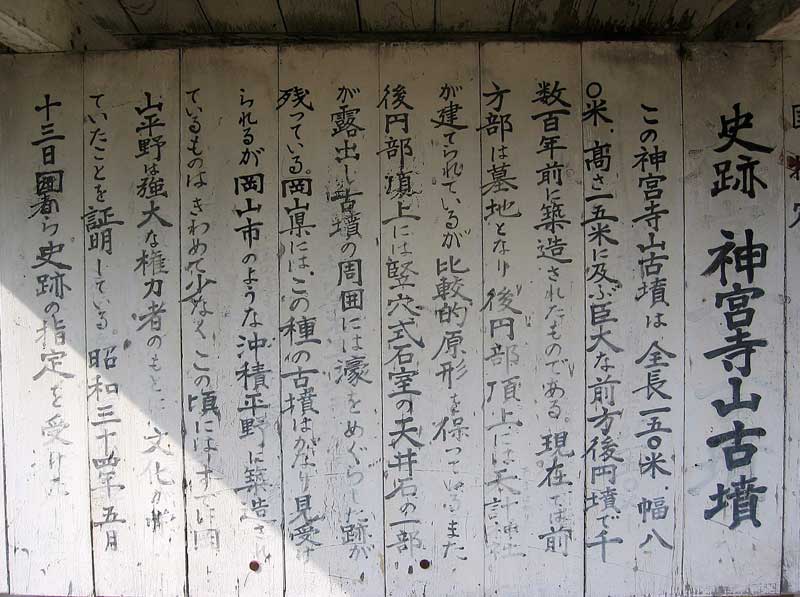 史跡 神宮寺山古墳
この神宮寺山古墳は全長一五〇米、幅八
〇米、高さ一五米に及ぶ巨大な前方後円墳で千
数百年前に築造されたものである。現在では前
方部は墓地となり後円部頂上には天計神社
が建てられているが比較的原形を保っているまた
後円部墳上には竪穴式石室の天井石の一部
が露出し古墳の周囲には濠をめぐらした跡が
残っている。岡山県には、この種の古墳はかなり見受け
られるが岡山市のような沖積平野に築造され
ているものはきわめて少なくこの頃にはすでに岡
山平野は強大な権力者のもとに文化が
ていたことを証明している。昭和三十四年五月
十三日国から史跡の指定を受けた